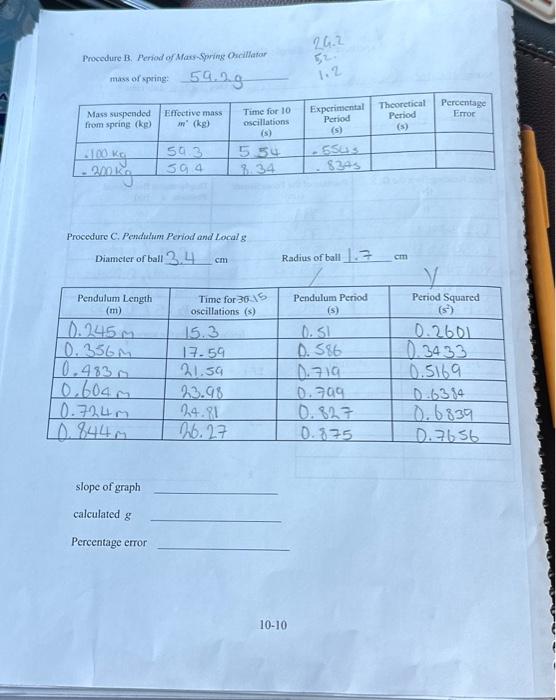 24.2
Procedure B. Period of Mass-Spring Oscillator
52.
mass of spring: 59.2g
1.2
Mass suspended from spring (kg) Effective mass m' (kg) Time for 10 oscillations (s) Experimental Period (s) Theoretical Period (s) Percentage Error
.100 kg 59.3 5.54 .554s
.200kg 59.4 8.34 .834s
Procedure C. Pendulum Period and Local g
Diameter of ball 3.4 cm Radius of ball 1.7 cm
Y
Pendulum Length (m) Time for 30 15 oscillations (s) Pendulum Period (s) Period Squared (s²)
0.245m 15.3 0.51 0.2601
0.356m 17.59 0.586 0.3433
0.483m 21.59 0.719 0.5169
0.604m 23.98 0.799 0.6384
0.724m 24.81 0.827 0.6839
0.844m 26.27 0.875 0.7656
slope of graph
calculated g
Percentage error
10-10